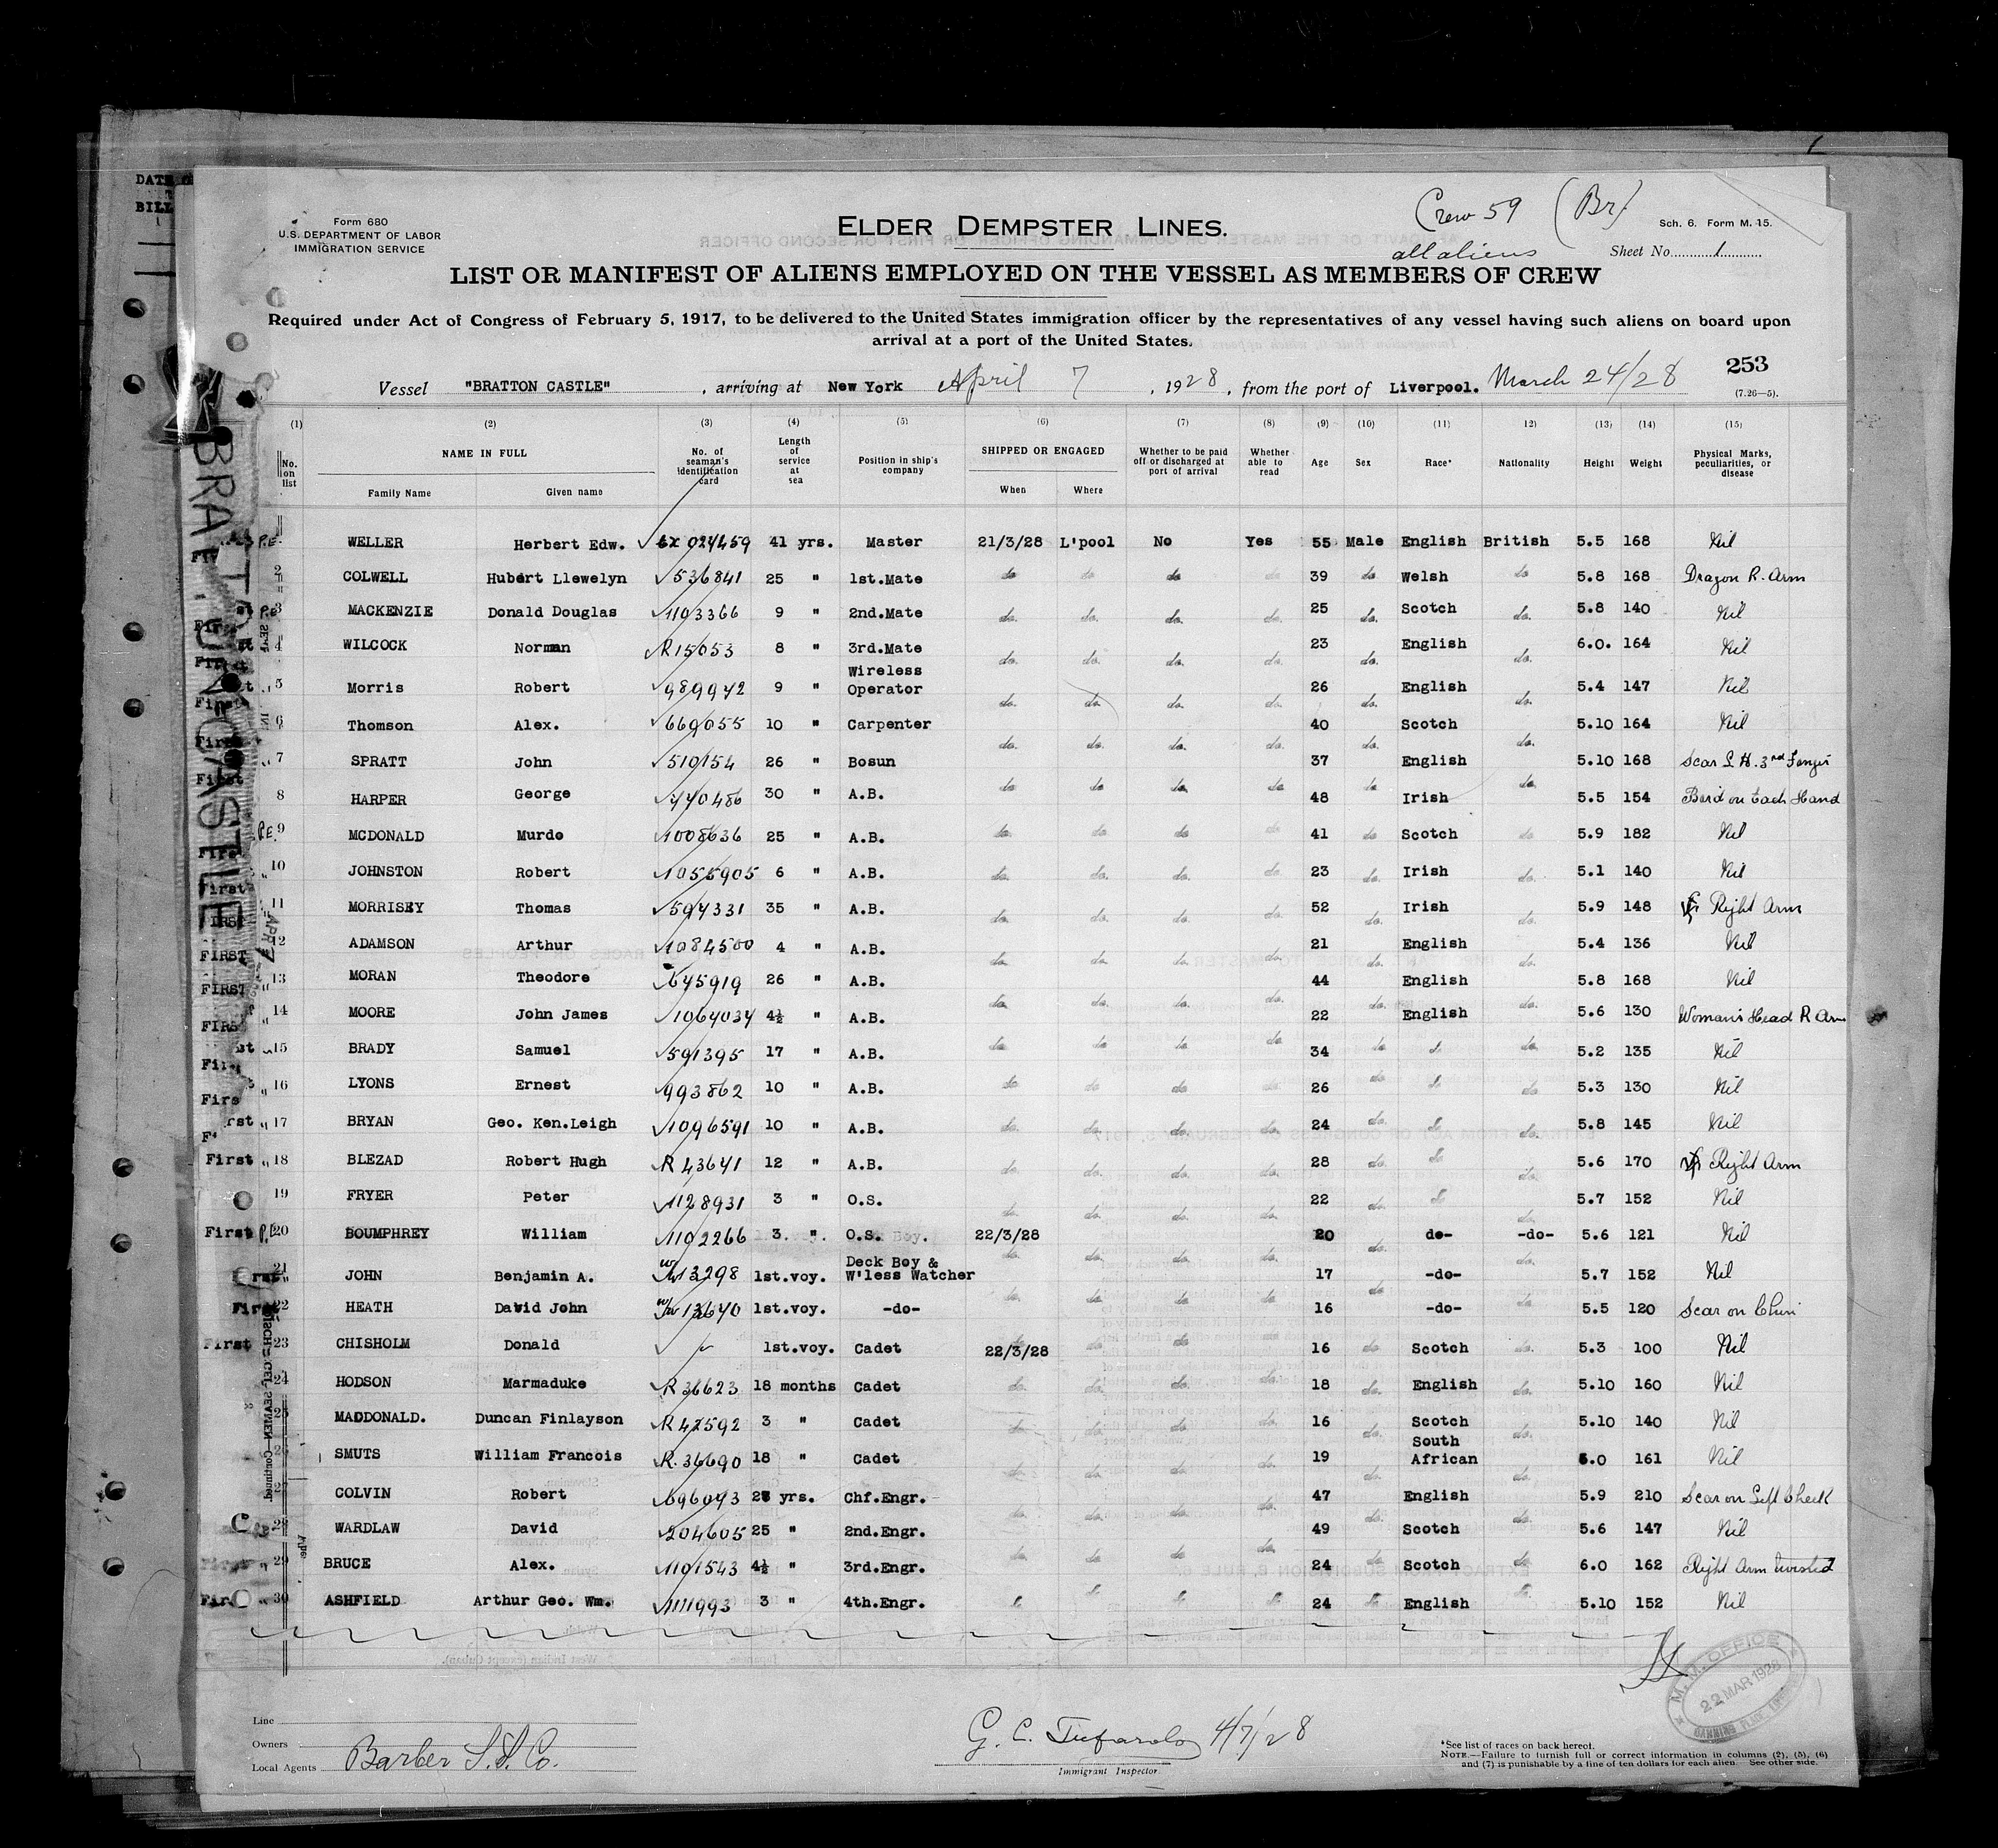 Form 680
U.S. DEPARTMENT OF LABOR
IMMIGRATION SERVICE
ELDER DEMPSTER LINES.
Crew 59 (Br)
all aliens
Sch. 6. Form M. 15.
Sheet No. 1
LIST OR MANIFEST OF ALIENS EMPLOYED ON THE VESSEL AS MEMBERS OF CREW
Required under Act of Congress of February 5, 1917, to be delivered to the United States immigration officer by the representatives of any vessel having such aliens on board upon
arrival at a port of the United States.
253
Vessel "BRATTON CASTLE", arriving at New York April 7, 1928, from the port of Liverpool. March 24/28
(7.26—5).
(1) (2) (3) (4) (5) (6) (7) (8) (9) (10) (11) 12) (13) (14) (15)
No. on list NAME IN FULL Family Name Given name No. of seaman's identification card Length of service at sea Position in ship's company SHIPPED OR ENGAGED When Where Whether to be paid off or discharged at port of arrival Whether able to read Age Sex Race* Nationality Height Weight Physical Marks, peculiarities, or disease
WELLER Herbert Edw. 024459 41 yrs. Master 21/3/28 L'pool No Yes 55 Male English British 5.5 168 Nil
2 COLWELL Hubert Llewelyn 536841 25 " 1st.Mate do do do do 39 do Welsh do 5.8 168 Dragon R. Arm
3 MACKENZIE Donald Douglas 1103366 9 " 2nd.Mate do. do. do. do. 25 do. Scotch do. 5.8 140 Nil
4 WILCOCK Norman R15053 8 " 3rd.Mate do. do. do. do. 23 do. English do. 6.0. 164 Nil
5 Morris Robert 989942 9 " Wireless Operator do. do. do. do. 26 do. English do. 5.4 147 Nil
6 Thomson Alex. 669055 10 " Carpenter do. do. do. do. 40 do. Scotch do. 5.10 164 Nil
7 SPRATT John 510154 26 " Bosun do do do do 37 do English do 5.10 168 Scar L H. 3rd Finger
8 HARPER George 440486 30 " A.B. do. do. do do 48 do Irish do 5.5 154 Bird on Each Hand
9 MCDONALD Murdo 1008636 25 " A.B. do. do. do. do. 41 do. Scotch do. 5.9 182 Nil
10 JOHNSTON Robert 1055905 6 " A.B. do. do. do. do. 23 do. Irish do. 5.1 140 Nil
11 MORRISEY Thomas 594331 35 " A.B. do. do. do. do. 52 do. Irish do. 5.9 148 Right Arm
12 ADAMSON Arthur 1084500 4 " A.B. do do do. do. 21 do. English do. 5.4 136 Nil
13 MORAN Theodore 645919 26 " A.B. do. do. do. do. 44 do. English do. 5.8 168 Nil
14 MOORE John James 1064034 4½ " A.B. do do do do 22 do English do 5.6 130 Woman's Head R Arm
15 BRADY Samuel 591395 17 " A.B. do do do do 34 do do 5.2 135 Nil
16 LYONS Ernest 993862 10 " A.B. do. do. do. do. 26 do. do. 5.3 130 Nil
17 BRYAN Geo. Ken.Leigh 1096591 10 " A.B. do. do. do. do. 24 do. do. 5.8 145 Nil
18 BLEZAD Robert Hugh R 43641 12 " A.B. do. do. do. do. 28 do. do. 5.6 170 Right Arm
19 FRYER Peter 1128931 3 " O.S. do. do. do. do. 22 do. do. 5.7 152 Nil
20 BOUMPHREY William 1102266 3. " O.S. 22/3/28 20 do- -do- 5.6 121 Nil
21 JOHN Benjamin A. 13298 1st.voy. Deck Boy & W'less Watcher 17 -do- 5.7 152 Nil
22 HEATH David John 13640 1st.voy. -do- 16 -do- 5.5 120 Scar on Chin
23 CHISHOLM Donald 1st.voy. Cadet 22/3/28 16 do Scotch do. 5.3 100 Nil
24 HODSON Marmaduke R 36623 18 months Cadet do. do. do. do. 18 do. English do. 5.10 160 Nil
25 MACDONALD. Duncan Finlayson R 47592 3 " Cadet do. do. do. do. 16 do. Scotch do. 5.10 140 Nil
26 SMUTS William Francois R. 36690 18 " Cadet do. do. do. do. 19 do. South African do. 6.0 161 Nil
27 COLVIN Robert 696093 yrs. Chf.Engr. do. do. do. do. 47 do. English do. 5.9 210 Scar on Left Cheek
28 WARDLAW David 204605 25 " 2nd.Engr. do. do. do do. 49 do Scotch do. 5.6 147 Nil
29 BRUCE Alex. 1101543 4½ " 3rd.Engr. 24 Scotch 6.0 162 Right Arm twisted
30 ASHFIELD Arthur Geo. Wm. 1111993 3 " 4th.Engr. 24 English 5.10 152 Nil
BRATTON CASTLE
M. M. OFFICE
22 MAR 1928
Line
Owners
Local Agents Barber S.S. Co.
G. C. Tufarolo 4/7/28
Immigrant Inspector.
*See list of races on back hereof.
NOTE.—Failure to furnish full or correct information in columns (2), (5), (6)
and (7) is punishable by a fine of ten dollars for each alien. See other side.